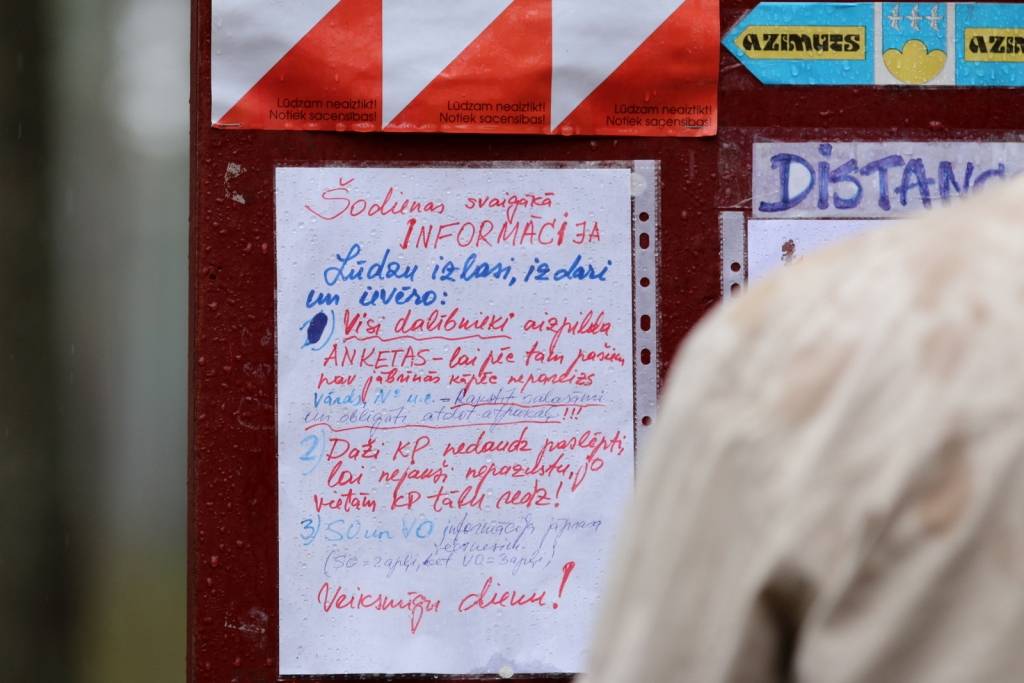 Lūdzam neaiztikt!
Notiek sacensības!
Lūdzam neaiztikt!
Notiek sacensības!
Lūdzam neaiztikt!
Notiek sacensības!
AZIMUTS
AZIM
DISTANC
Šodienas svaigākā
INFORMĀCIJA
Lūdzu izlasi, izdari
un ievēro:
1) Visi dalībnieki aizpilda
ANKETAS - lai pēc tam pašiem
nav jābrīnās kāpēc nepareizs
vārds, Nº u.c. - Rakstīt salasāmi
un obligāti atdot atpakaļ !!!
2) Daži KP nedaudz paslēpti,
lai nejauši nepazustu, jo
vietām KP tālu redz!
3) SO un VO informācija jāprasa
(SO = 2 apļi, bet VO = 3 apļi)
Veiksmīgu dienu!